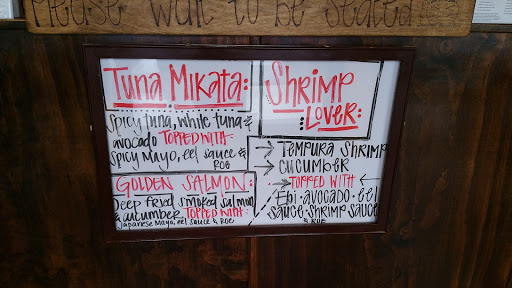 Please wait to be seated
Tuna Mikata:
Spicy tuna, white tuna &
avocado TOPPED WITH:
Spicy Mayo, eel sauce &
ROE
GOLDEN SALMON:
Deep fried smoked salmon
& cucumber TOPPED WITH:
Japanese Mayo, eel sauce & ROE
Shrimp
Lover:
→ Tempura Shrimp
→ Cucumber
→ TOPPED WITH ←
Ebi · avocado · eel
sauce · shrimp sauce
& ROE